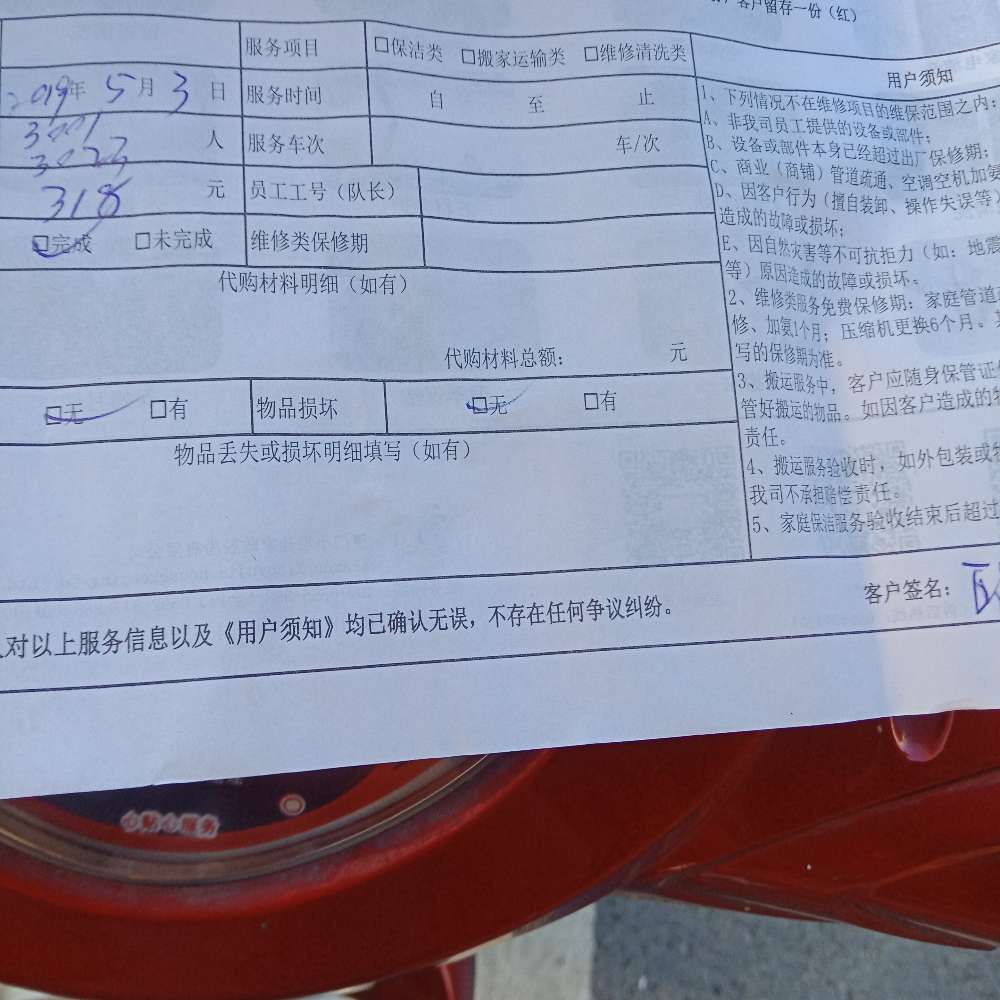 客户留存一份（红）
服务项目 □保洁类 □搬家运输类 □维修清洗类
2019年 5月 3日 服务时间 自 至 止
3001
3023 人 服务车次 车/次
318 元 员工工号（队长）
□完成 □未完成 维修类保修期
代购材料明细（如有）
代购材料总额： 元
□无 □有 物品损坏 □无 □有
物品丢失或损坏明细填写（如有）
用户须知
1、下列情况不在维修项目的维保范围之内：
A、非我司员工提供的设备或部件；
B、设备或部件本身已经超过出厂保修期；
C、商业（商铺）管道疏通、空调空机加氨
D、因客户行为（擅自装卸、操作失误等）
造成的故障或损坏；
E、因自然灾害等不可抗拒力（如：地震
等）原因造成的故障或损坏。
2、维修类服务免费保修期：家庭管道
修、加氨1个月；压缩机更换6个月。
写的保修期为准。
3、搬运服务中，客户应随身保管证
管好搬运的物品。如因客户造成的
责任。
4、搬运服务验收时，如外包装或
我司不承担赔偿责任。
5、家庭保洁服务验收结束后超过
对以上服务信息以及《用户须知》均已确认无误，不存在任何争议纠纷。
客户签名：
心贴心服务